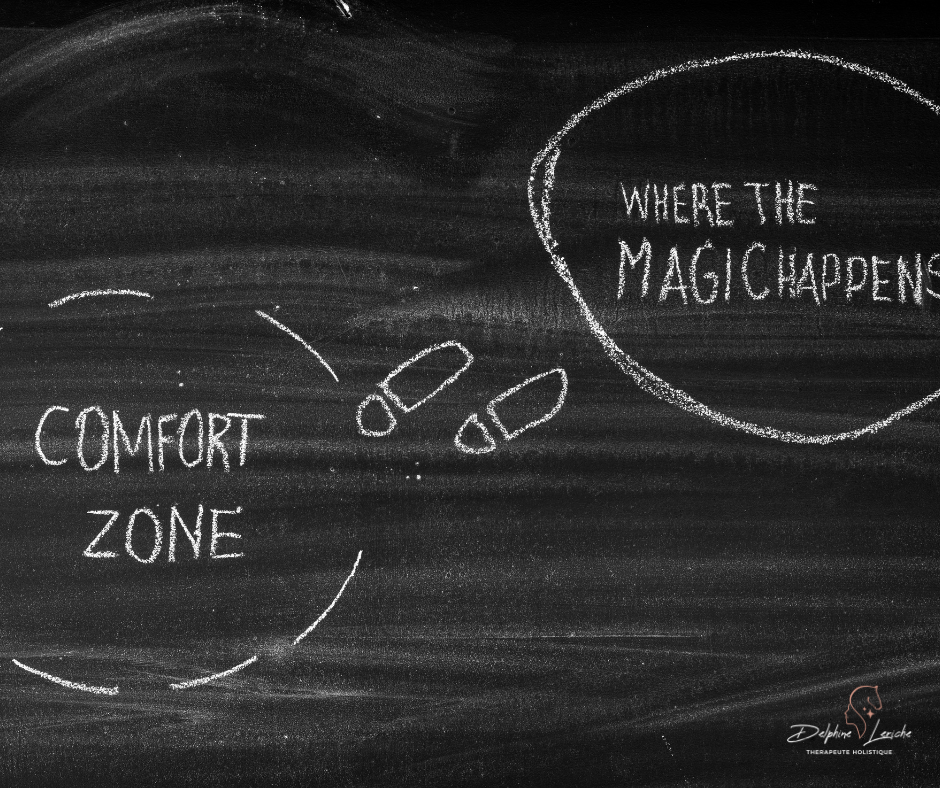 WHERE THE
MAGIC HAPPENS
COMFORT
ZONE
Delphine Leriche
THERAPEUTE HOLISTIQUE